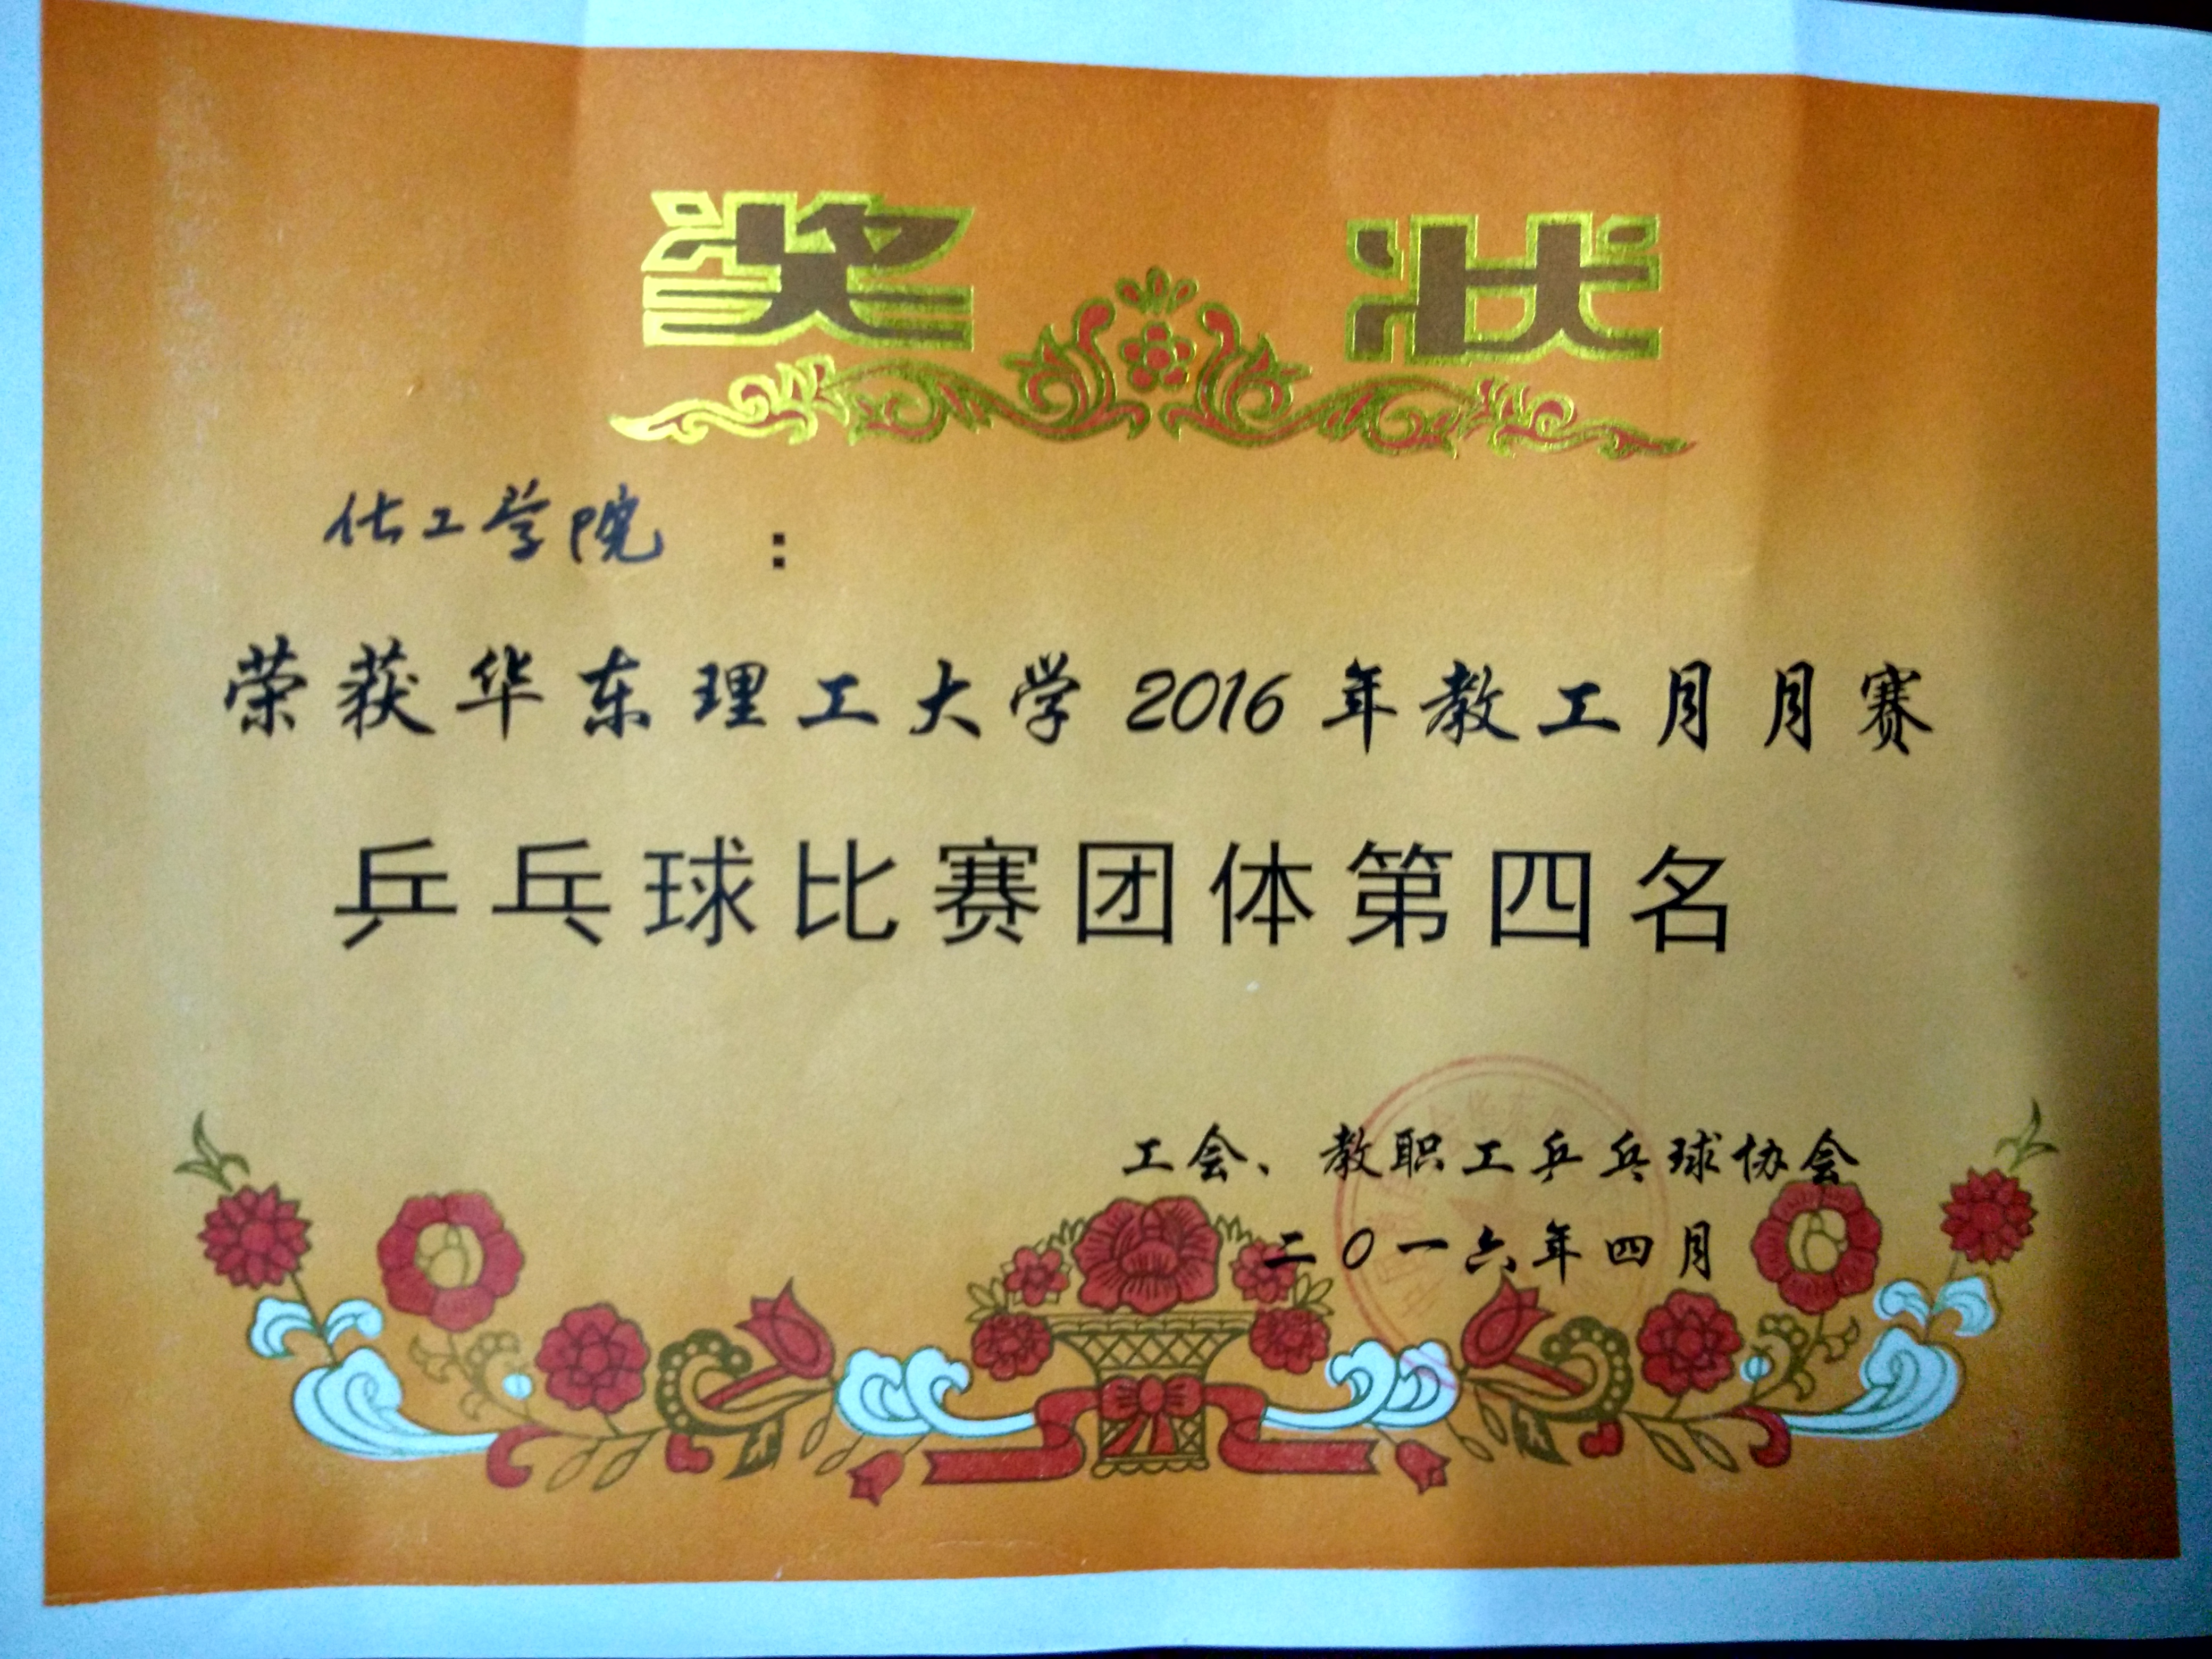 奖状
化工学院：
荣获华东理工大学2016年教工月月赛
乒乓球比赛团体第四名
工会、教职工乒乓球协会
二〇一六年四月